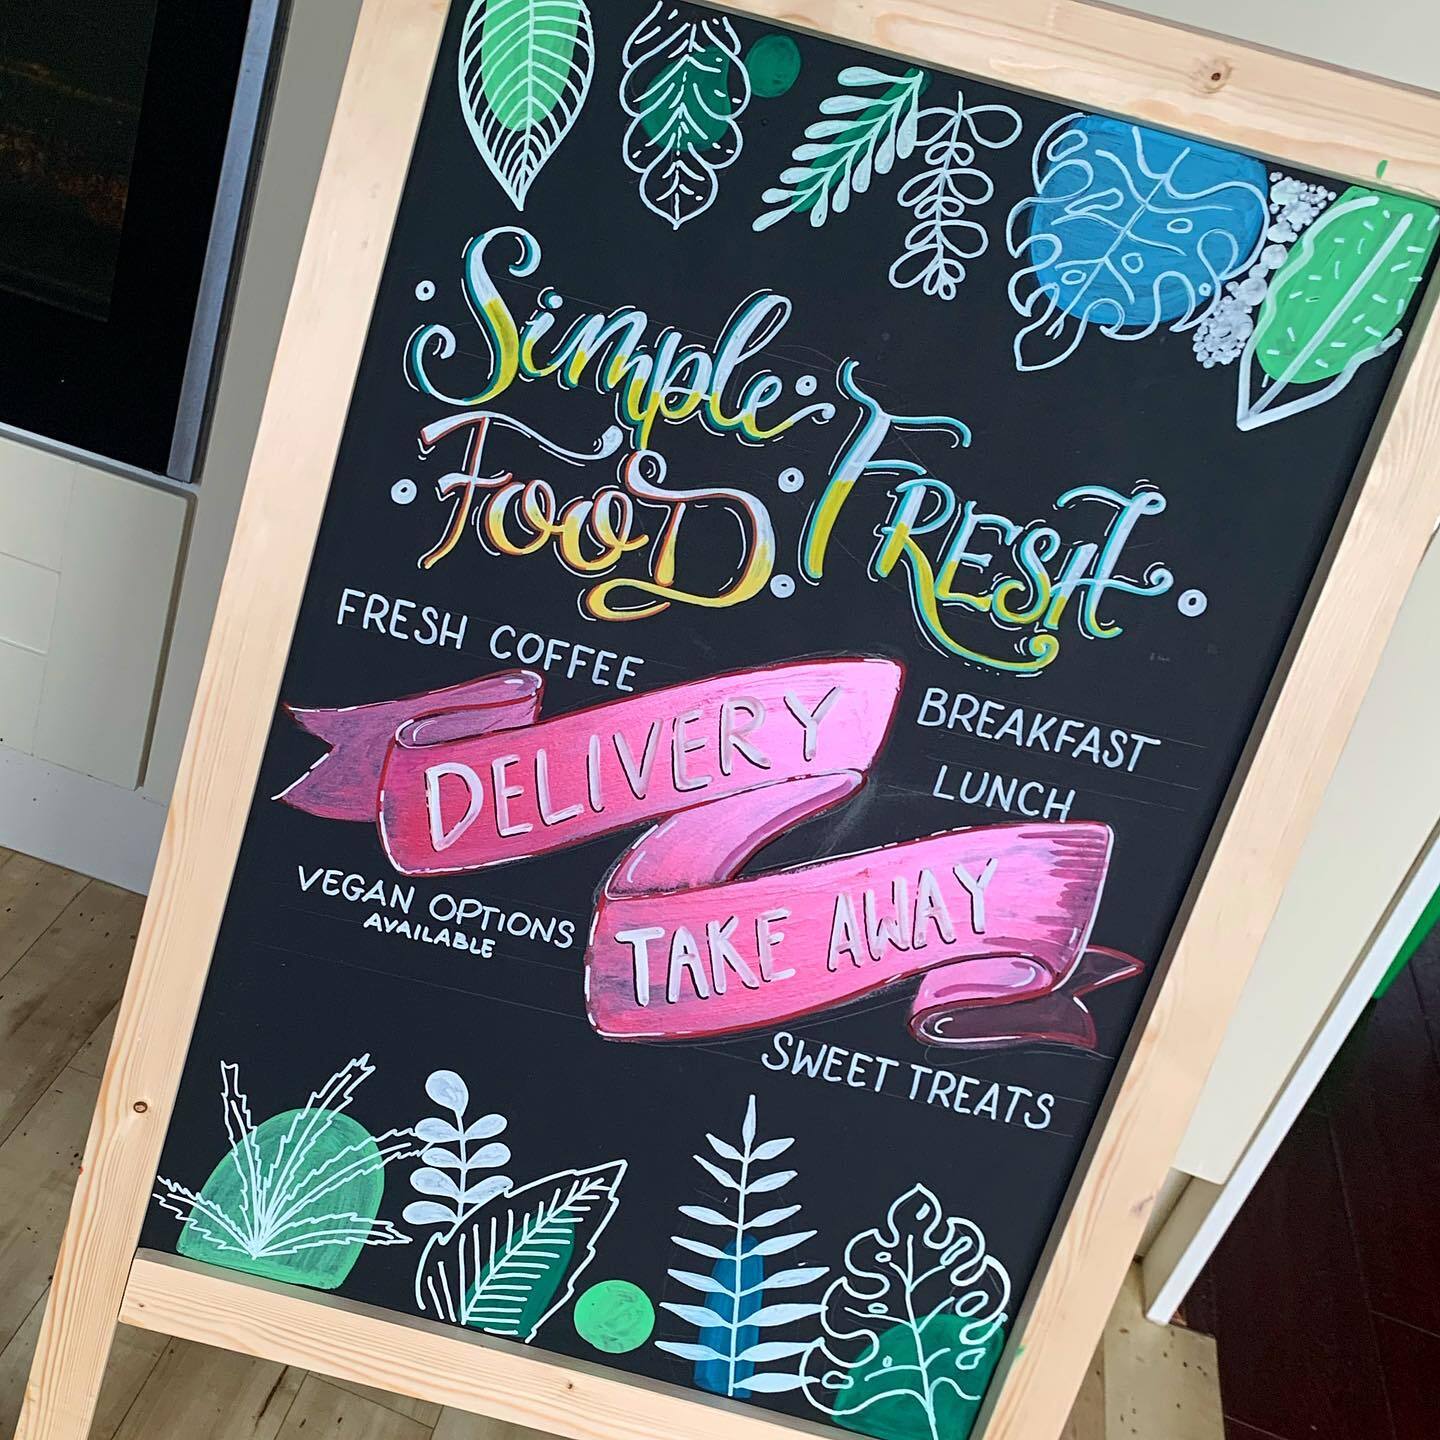 Simple
FOOD FRESH
FRESH COFFEE
DELIVERY
BREAKFAST
LUNCH
VEGAN OPTIONS
AVAILABLE
TAKE AWAY
SWEET TREATS